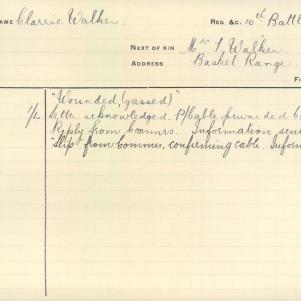 NAME Clarrie Walker REG. &C. 10th Battl
NEXT OF KIN Mr Walker
ADDRESS Basket Range.
"Wounded, (gassed)"
Letter acknowledged. P/Cable forwarded
Reply from Commrs. Information sent
slip from Commrs, confirming cable. Inform